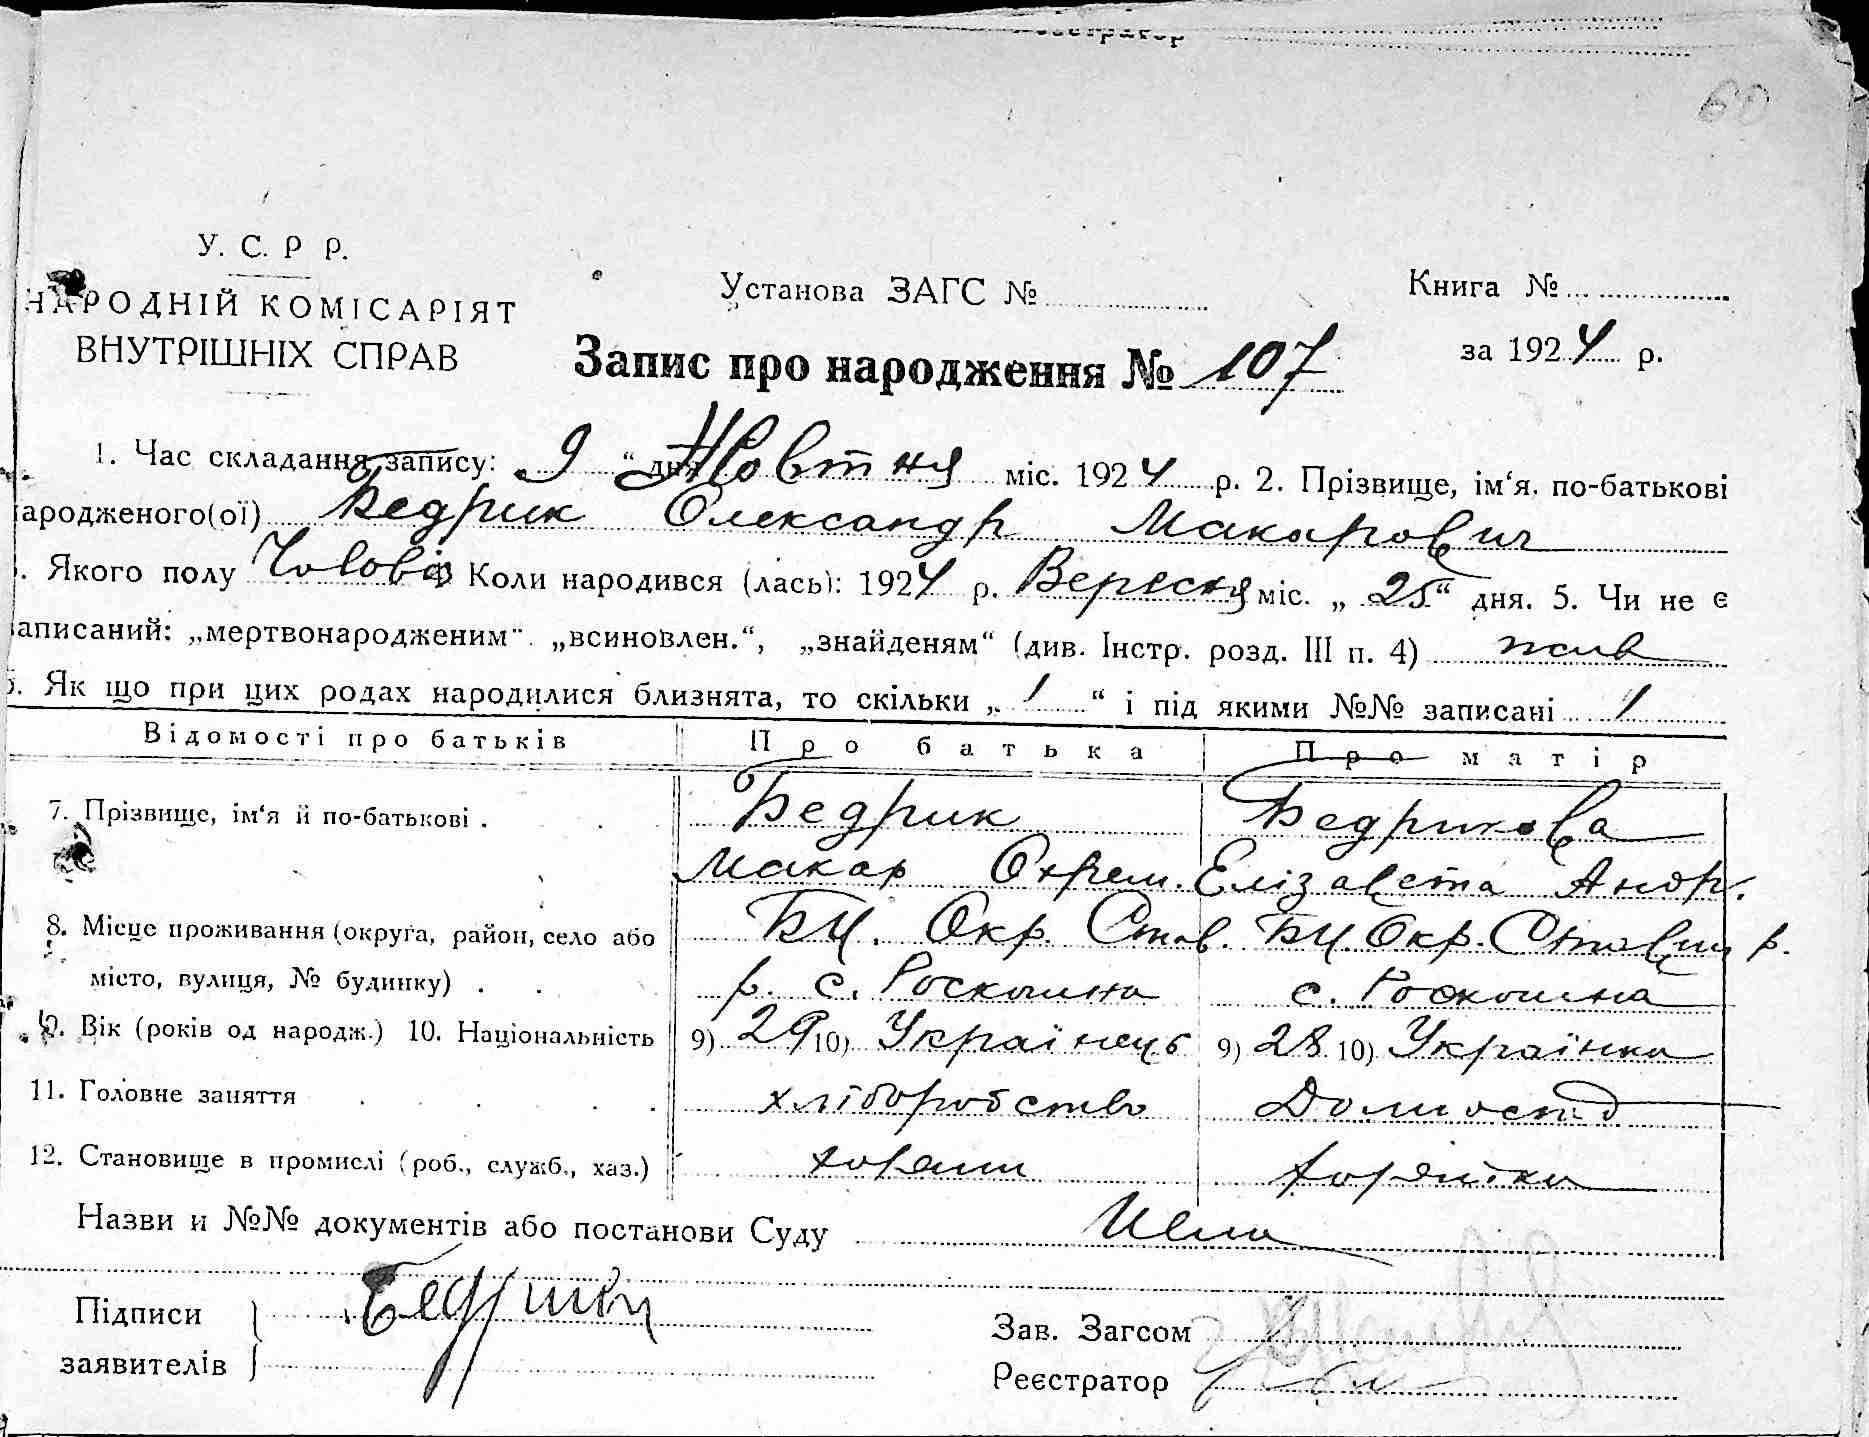 60
У. С. Р Р.
НАРОДНІЙ КОМІСАРІЯТ
ВНУТРІШНІХ СПРАВ
Установа ЗАГС №
Книга №
за 1924 р.
Запис про народження № 107
1. Час складання запису: 9 " дня Жовтня міс. 1924 р. 2. Прізвище, ім'я, по-батькові
ародженого(ої) Бедрик Олександр Макарович
. Якого полу Чоловіч Коли народився (лась): 1924 р. Вересня міс. „ 25 " дня. 5. Чи не є
аписаний: „мертвонародженим" „всиновлен.", „знайденям" (див. Інстр. розд. III п. 4) жив
. Як що при цих родах народилися близнята, то скільки „ / " і під якими №№ записані /
Відомості про батьків Про батька Про матір
7. Прізвище, ім'я й по-батькові . Бедрик Бедрикова
Макар Охрем. Елізавета Андр.
8. Місце проживання (округа, район, село або БЦ. Окр. Став. БЦ. Окр. Ставищ р.
місто, вулиця, № будинку) . . р. с. Роскошна с. Роскошна
9. Вік (років од народж.) 10. Національність 9) 29 10) Українець 9) 28 10) Українка
11. Головне заняття хліборобство Домогосп.
12. Становище в промислі (роб., служб., хаз.) хазяин хазяйка
Назви и №№ документів або постанови Суду Нема
Підписи Бедрик
заявителів
Зав. Загсом
Реєстратор